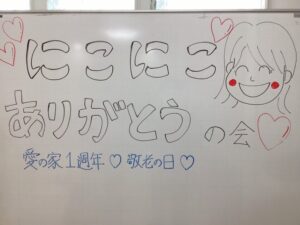 にこにこ
ありがとうの会
愛の家1週年♡ 敬老の日♡